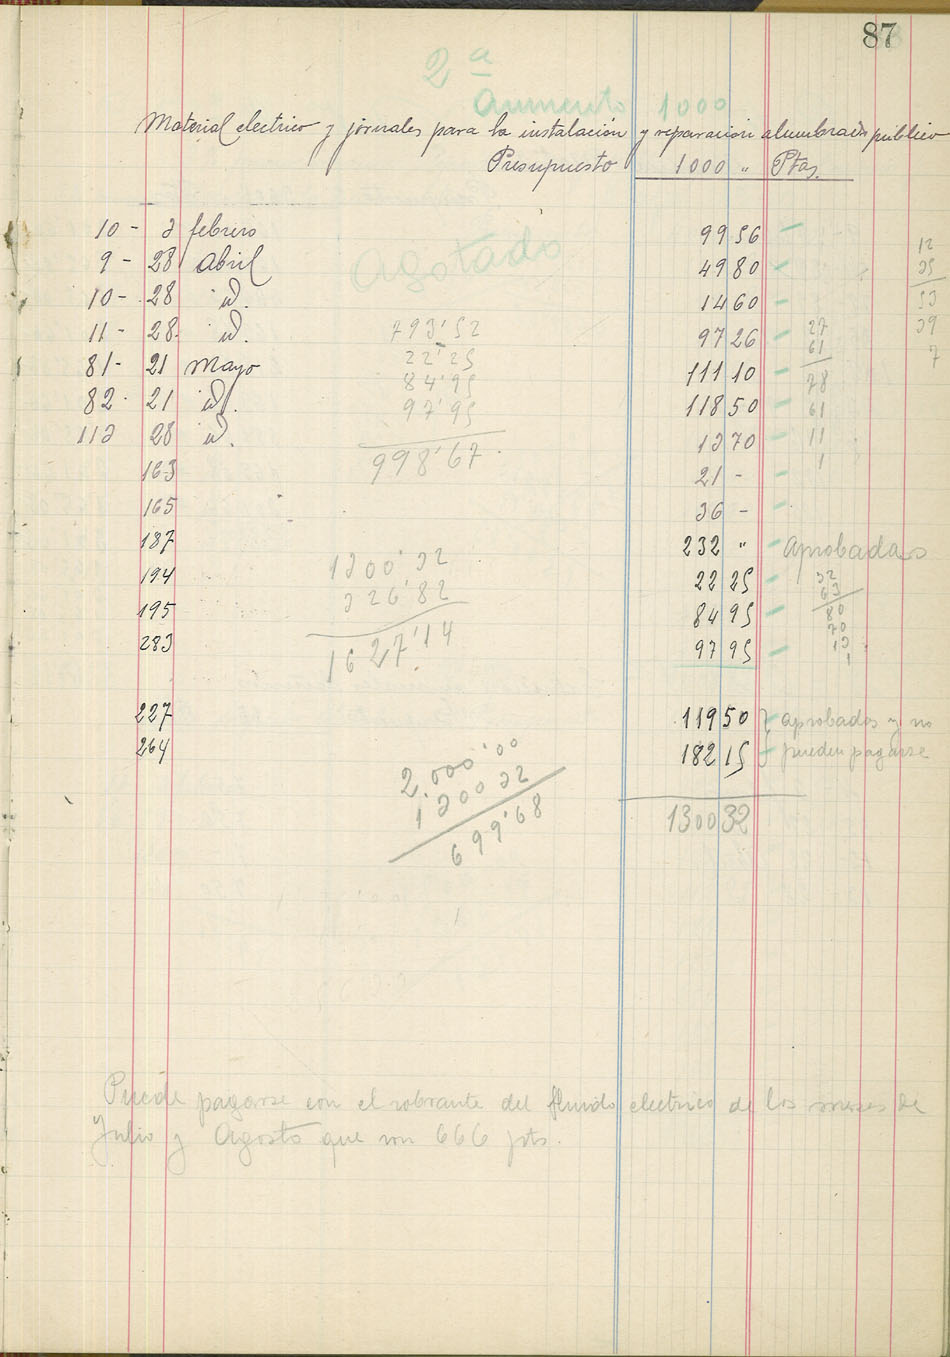 87
2ª
Aumento 1000
Material electrico y jornales para la instalación y reparación alumbrado público
Presupuesto 1000 " Ptas.
10 - 3 febrero 99 56 -
9 - 28 Abril 49 80 -
10 - 28 id. 14 60 -
11 - 28 id. 97 26 -
81 - 21 Mayo 111 10 -
82 - 21 id. 118 50 -
113 28 id. 13 70 -
163 21 - -
165 36 - -
187 232 " - Aprobadas
194 22 25 -
195 84 95 -
283 97 95 -
227 119 50 } aprobados y no
264 182 15 } pueden pagarse
1300 32
Agotado
793'52
22'25
84'95
97'95
998'67
1300'32
326'82
1627'14
2.000'00
1300 32
699'68
27
61
78
61
11
1
12
35
53
39
7
32
63
80
70
13
1
Puede pagarse con el sobrante del fluido electrico de los meses de
Julio y Agosto que son 666 pts.